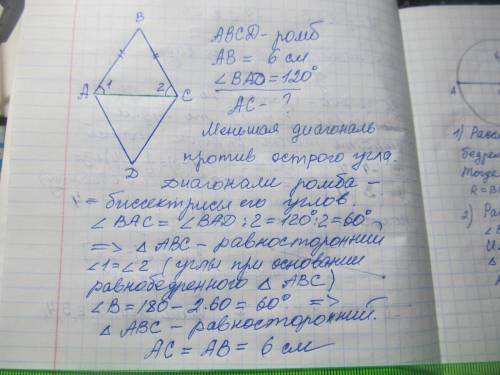 B
ABCD - ромб
AB = 6 см
∠BAD = 120°
A 1 2 C
AC - ?
D
Меньшая диагональ
против острого угла.
Диагонали ромба -
= биссектрисы его углов.
∠BAC = ∠BAD : 2 = 120° : 2 = 60°
=> △ABC - равносторонний
∠1 = ∠2 (углы при основании
равнобедренного △ABC)
∠B = 180 - 2·60 = 60° =>
△ABC - равносторонний.
AC = AB = 6 см
A
1)
2)